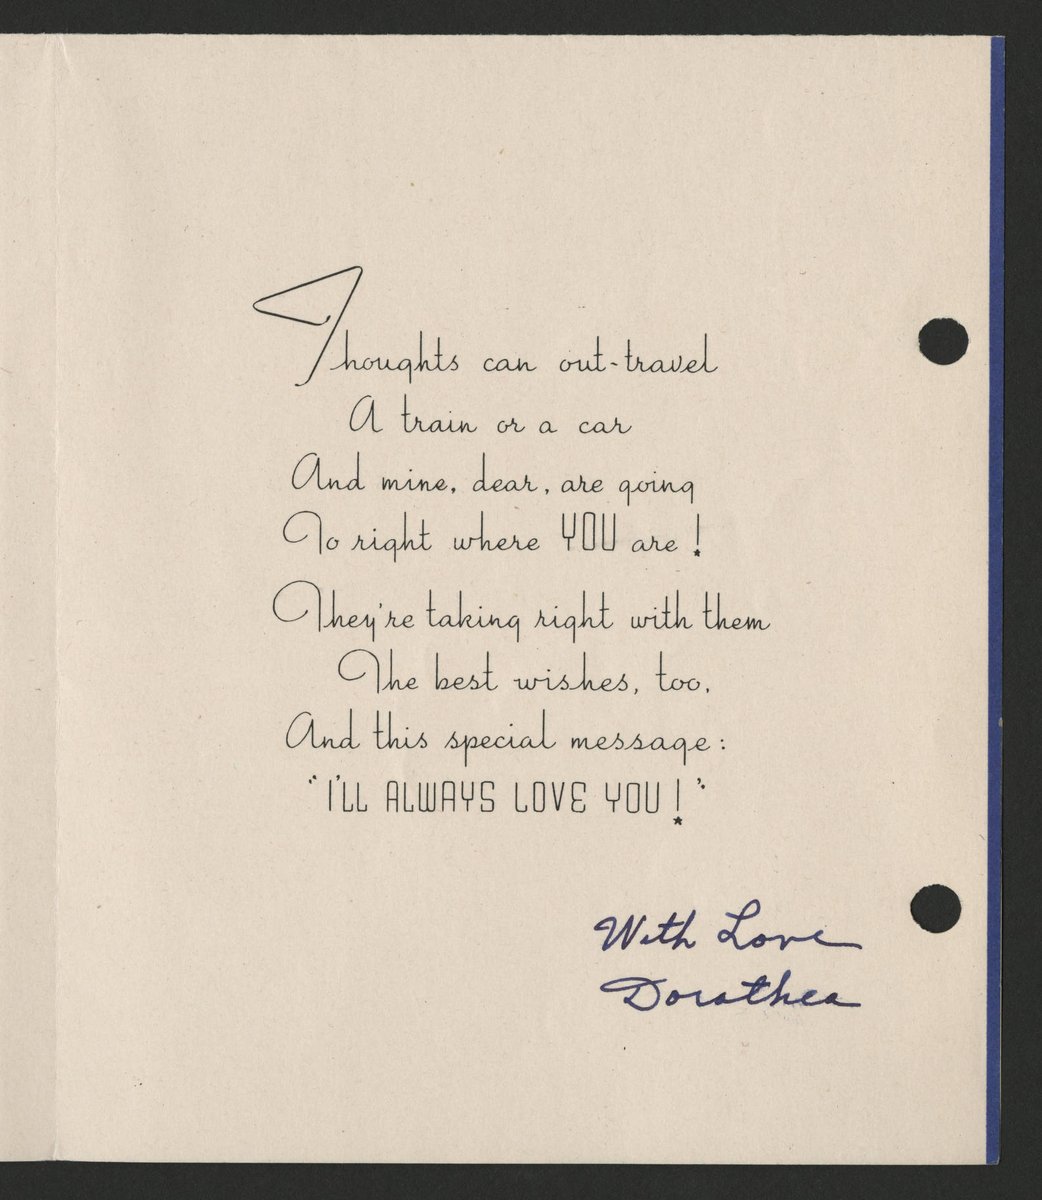 Thoughts can out-travel
A train or a car
And mine, dear, are going
To right where YOU are!
They're taking right with them
The best wishes, too,
And this special message:
"I'LL ALWAYS LOVE YOU!"
With Love
Dorathea